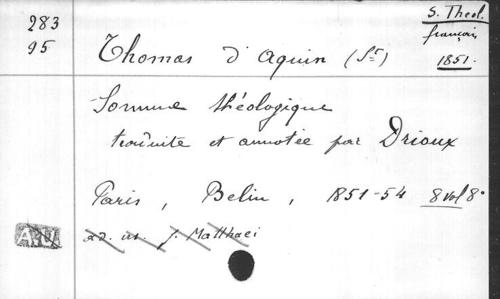 283
95
S. Theol.
français
1851.
Thomas d'Aquin (St)
Somme théologique
traduite et annotée par Drioux
Paris, Belin, 1851-54 8 vol 8°
ad. us. f. Matthaei